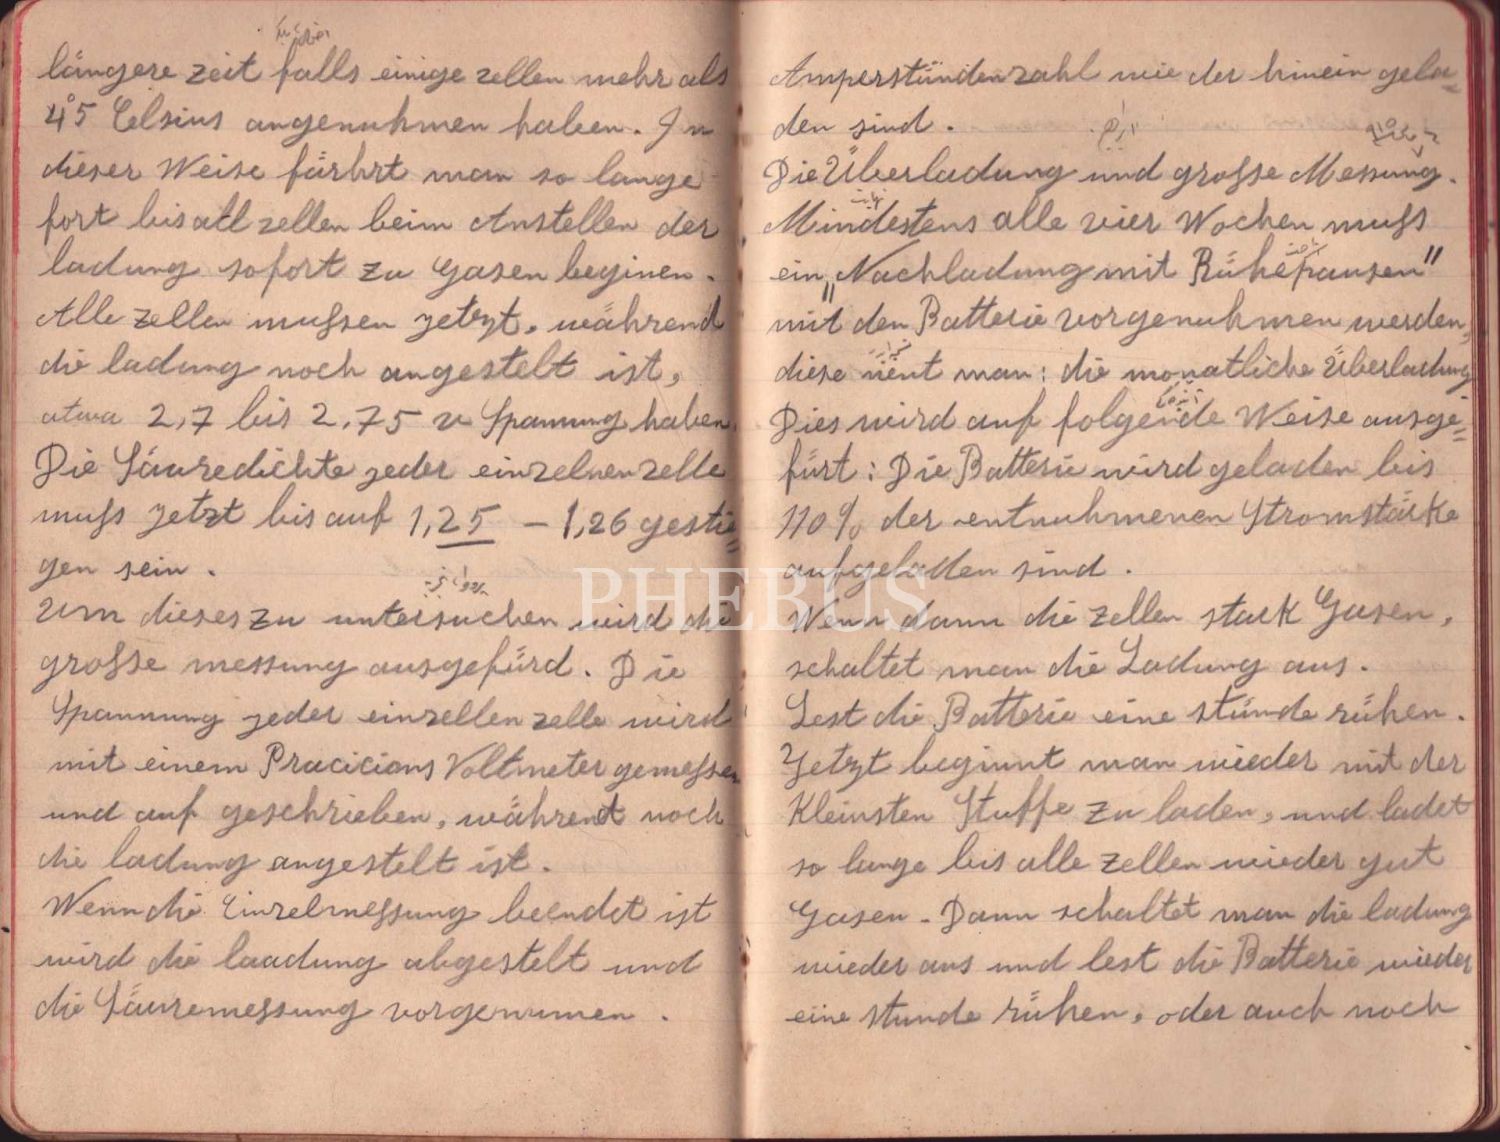 längere zeit falls einige zellen mehr als
45° Celsius angenuhmen haben. In
dieser Weise fährht man so lange
fort bis all zellen beim Anstellen der
ladung sofort zu Gasen beginen.
Alle zellen mußsen jetzt, während
die ladung noch angestelt ist,
atwa 2,7 bis 2,75 v Spannung haben.
Die Säuredichte jeder einzelnen zelle
muß jetzt bis auf 1,25 – 1,26 gestie=
gen sein.
Um dieses zu untersuchen wird die
große messung ausgefürd. Die
Spannung jeder einzellen zelle wird
mit einem Pracicions Voltmeter gemeßen
und auf geschrieben, während noch
die ladung angestelt ist.
Wenn die Einzelmeßung beendet ist
wird die laadung abgestelt und
die Säuremeßung vorgenumen.
Amperstundenzahl wie der hinein gela=
den sind.
Die Überladung und große Messung.
Mindestens alle vier Wochen muß
ein „Nachladung mit Ruhepausen"
mit den Batterie vorgenuhmen werden,
diese nent man: die monatliche Überladung
Dies wird auf folgende Weise ausge=
fürt: Die Batterie wird geladen bis
110% der entnuhmenen Stromstärke
aufgeladen sind.
Wenn dann die zellen stark Gasen,
schaltet man die Ladung aus.
Lest die Batterie eine stunde ruhen.
Jetzt beginnt man wieder mit der
Kleinsten Stuffe zu laden, und ladet
so lange bis alle zellen wieder gut
Gasen. Dann schaltet man die ladung
wieder aus und lest die Batterie wieder
eine stunde ruhen, oder auch noch
PHEBUS